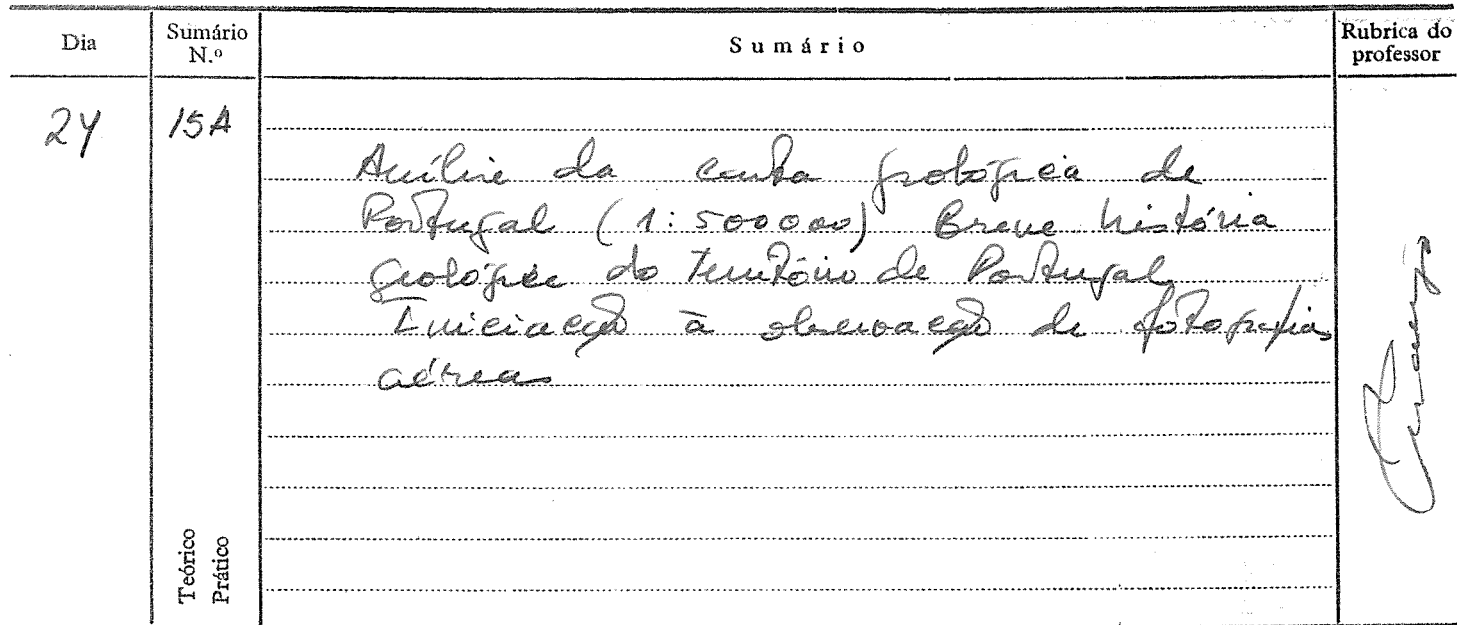 Dia
Sumário
N.º
Sumário
Rubrica do
professor
24
15A
Análise da carta geológica de
Portugal (1:500000) Breve história
geológica do território de Portugal
Iniciação à observação de fotografias
aéreas
Teórico
Prático